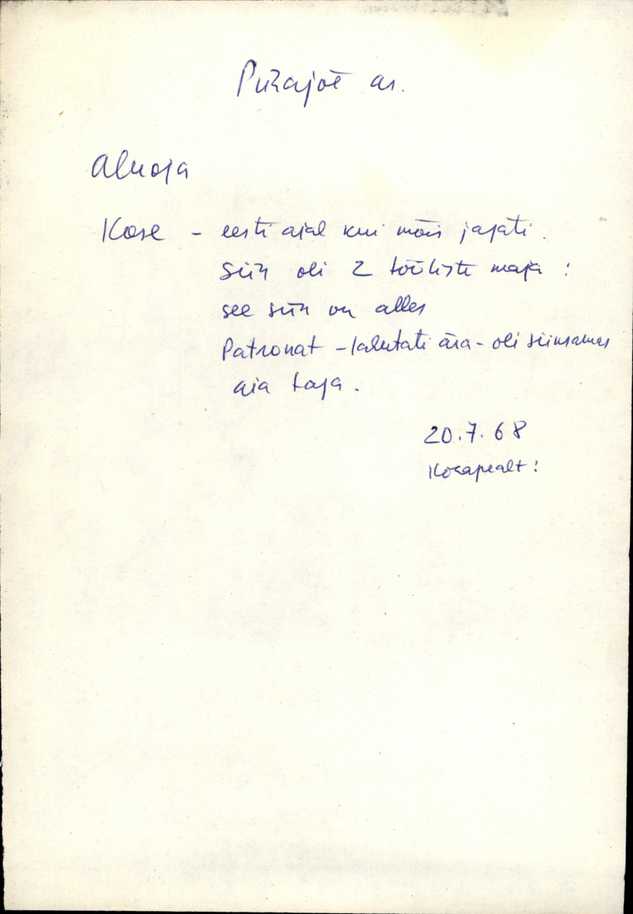 as.
Aluoja
Kose – eesti ajal kui mõis jagati.
Siin oli 2 tööliste maja:
see siin on alles
Patronat – lahutati ära – oli siinsamas
aia taga.
20.7.68
Kosapealt: